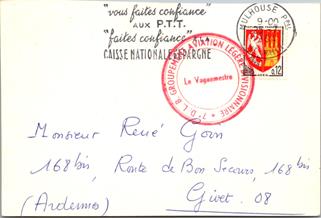 "vous faites confiance"
AUX P.T.T.
"faites confiance" à la
CAISSE NATIONALE D'ÉPARGNE
MULHOUSE PPAL
9-00
0,12
GROUPEMENT AVIATION LÉGÈRE DIVISIONNAIRE
7e D.L.B
Le Vaguemestre
Monsieur René Gorn
168 bis, Route de Bon Secours, 168 bis
(Ardennes) Givet. 08